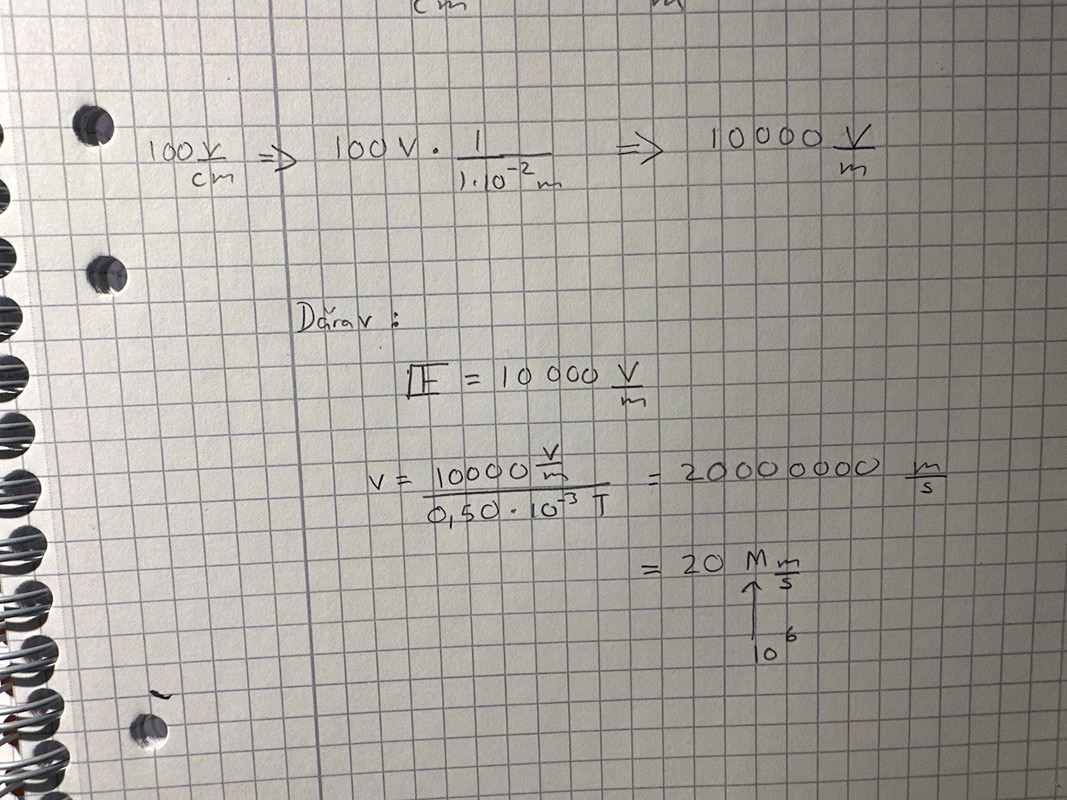 cm m
100 V/cm => 100 V · 1/(1·10⁻² m) => 10000 V/m
Därav :
E = 10 000 V/m
v = (10000 V/m)/(0,50 · 10⁻³ T) = 20000000 m/s
= 20 M m/s
↑
10⁶